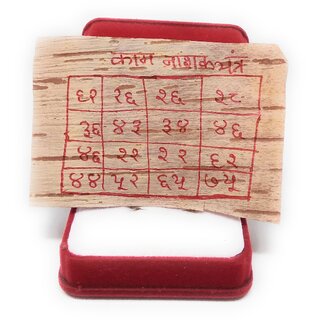 काम नाशक यंत्र
६२ २६ २६ २८
३६ ४३ ३४ ४६
४६ २२ २२ ६२
४४ ५२ ६५ ७५